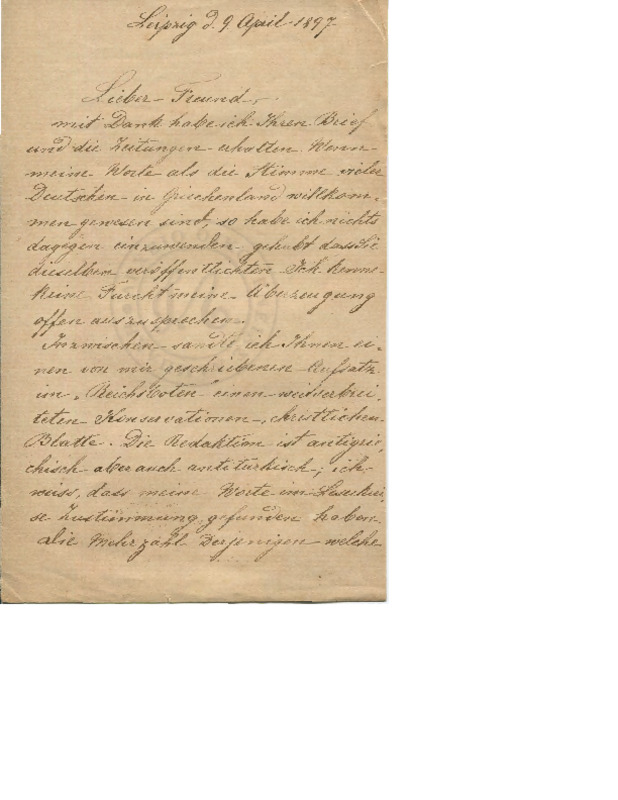 Leipzig d. 9 April 1897
Lieber Freund,
mit Dank habe ich Ihren Brief
und die Zeitungen erhalten. Wenn
meine Worte als die Stimme vieler
Deutschen in Griechenland willkom-
men gewesen sind, so habe ich nichts
dagegen einzuwenden gehabt dass Sie
dieselben veröffentlichten. Ich kenne
keine Furcht meine Überzeugung
offen auszusprechen.
Inzwischen sandte ich Ihnen ei-
nen von mir geschriebenen Aufsatz
im "Reichsboten" einem weitverbrei-
teten Konservationen, christlichen
Blatte. Die Redaktion ist antigrie-
chisch aber auch antitürkisch; ich
weiss, dass meine Worte im Leserkrei-
se Zustimmung gefunden haben.
die Mehrzahl derjenigen welche